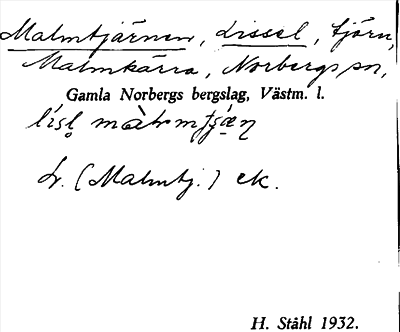 Malmtjärnen, Lissel, tjärn,
Malmkärra, Norbergs sn,
Gamla Norbergs bergslag, Västm. l.
Lr. (Malmtj.) ek.
H. Ståhl 1932.